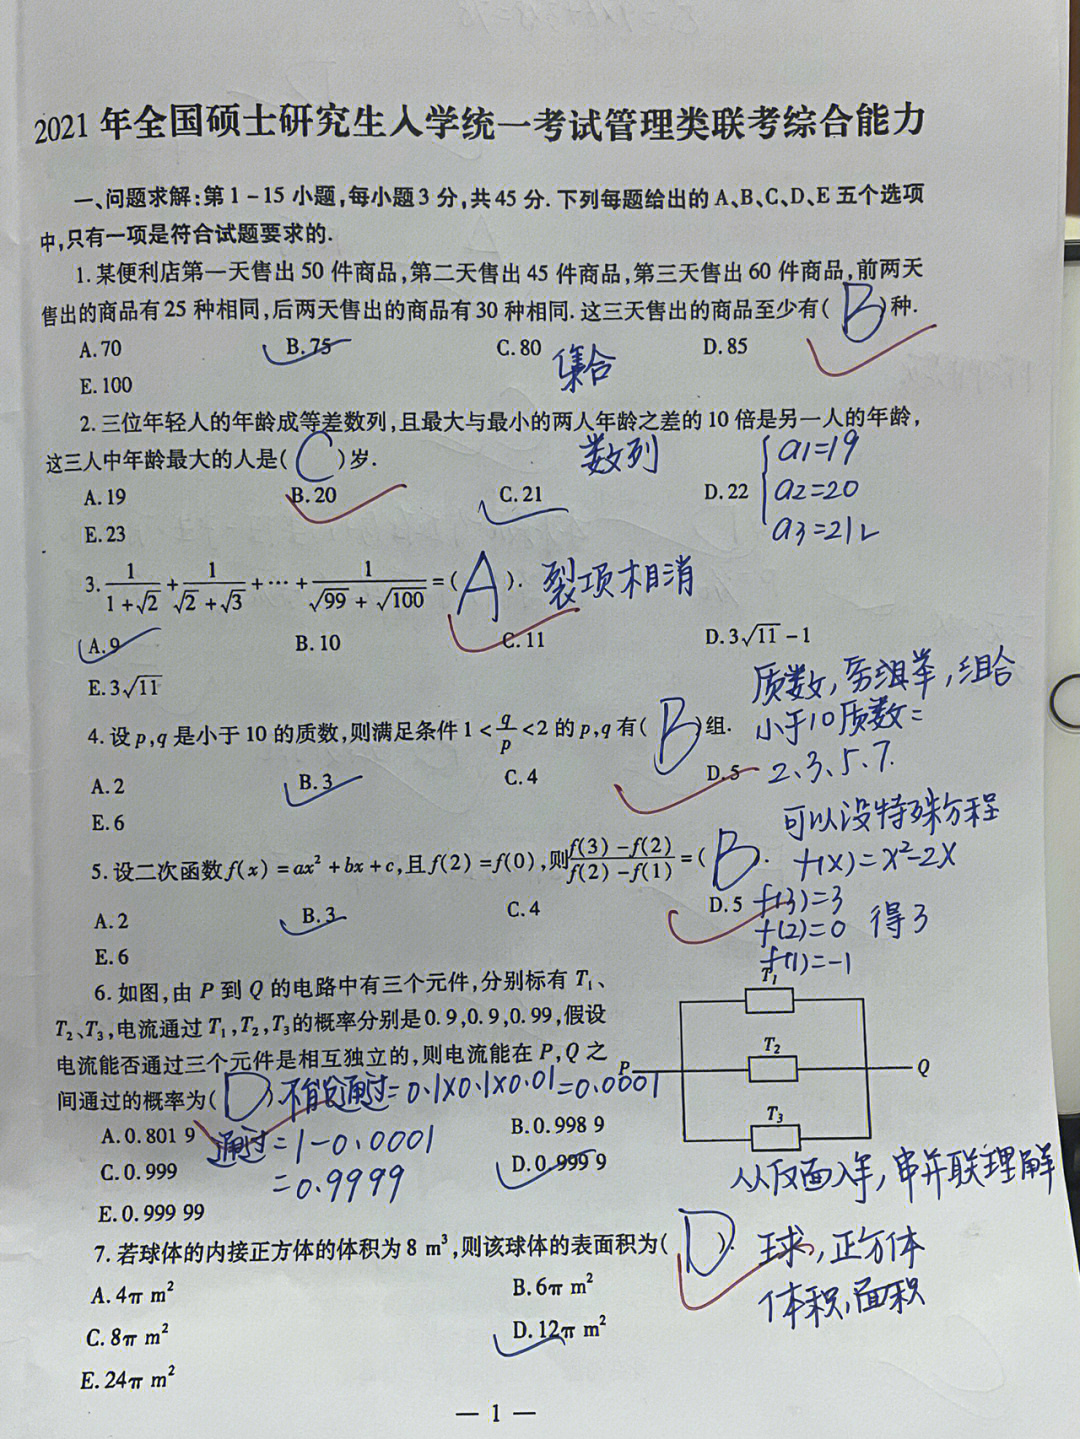 2021 年全国硕士研究生入学统一考试管理类联考综合能力
一、问题求解:第 1－15 小题,每小题 3 分,共 45 分. 下列每题给出的 A、B、C、D、E 五个选项
中,只有一项是符合试题要求的.
1. 某便利店第一天售出 50 件商品,第二天售出 45 件商品,第三天售出 60 件商品,前两天
售出的商品有 25 种相同,后两天售出的商品有 30 种相同. 这三天售出的商品至少有( B )种.
A. 70 B. 75 C. 80 D. 85
集合
E. 100
2. 三位年轻人的年龄成等差数列,且最大与最小的两人年龄之差的 10 倍是另一人的年龄,
这三人中年龄最大的人是( C )岁. 数列 a1=19
A. 19 B. 20 C. 21 D. 22 a2=20
E. 23 a3=21
3. 1/(1+√2) + 1/(√2+√3) + ⋯ + 1/(√99 + √100) = ( A ). 裂项相消
A. 9 B. 10 C. 11 D. 3√11 －1
E. 3√11
质数,穷举,组合
4. 设 p,q 是小于 10 的质数,则满足条件 1 < q/p < 2 的 p,q 有( B )组. 小于10质数=
A. 2 B. 3 C. 4 D. 5 2、3、5、7.
E. 6
可以没特殊方程
5. 设二次函数 f(x) = ax² + bx + c,且 f(2) = f(0),则 (f(3) － f(2))/(f(2) － f(1)) = ( B ). f(x)=x²-2x
A. 2 B. 3 C. 4 D. 5 f(3)=3
f(2)=0 得3
E. 6 f(1)=-1
6. 如图,由 P 到 Q 的电路中有三个元件,分别标有 T₁、
T₂、T₃,电流通过 T₁,T₂,T₃的概率分别是 0. 9,0. 9,0. 99,假设
电流能否通过三个元件是相互独立的,则电流能在 P,Q 之
间通过的概率为( D ). 不能通过=0.1×0.1×0.01=0.0001
T₁
T₂
P Q
T₃
A. 0. 801 9 通过=1-0.0001 B. 0. 998 9
C. 0. 999 =0.9999 D. 0. 999 9
从反面入手,串并联理解
E. 0. 999 99
7. 若球体的内接正方体的体积为 8 m³,则该球体的表面积为( D ). 球,正方体
A. 4π m² B. 6π m² 体积,面积
C. 8π m² D. 12π m²
E. 24π m²
— 1 —